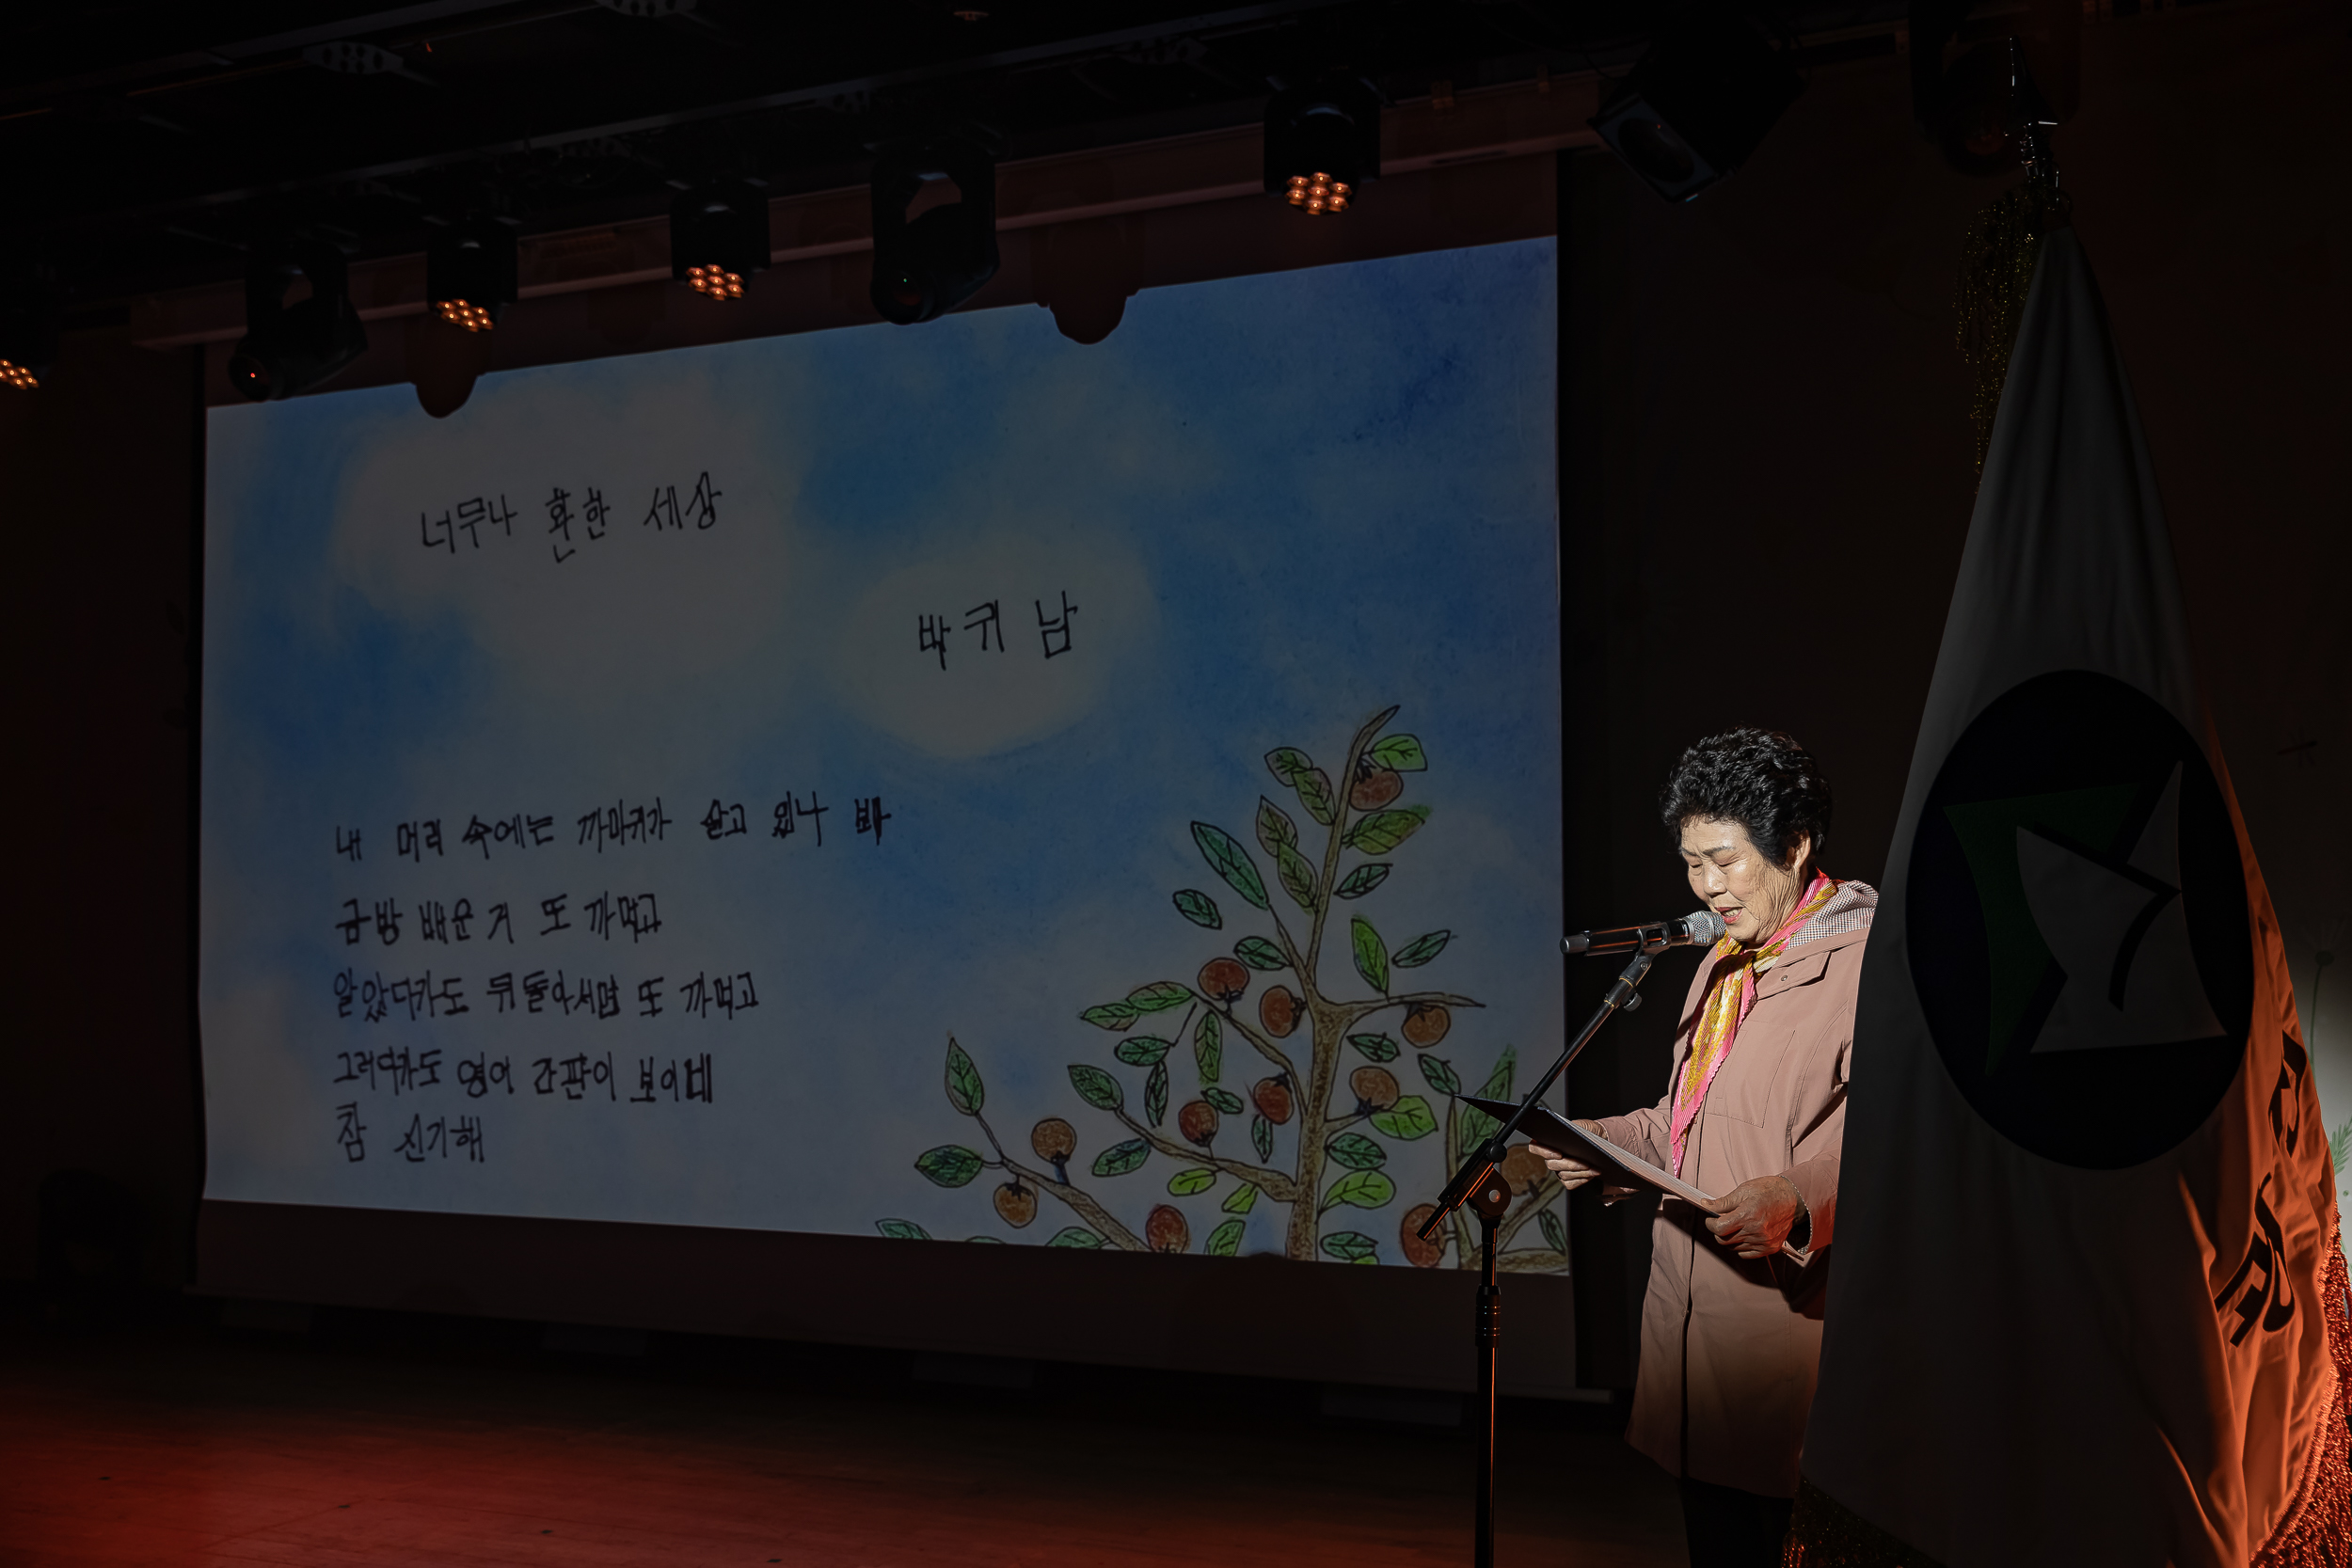 너무나 환한 세상
박귀남
내 머리 속에는 까마귀가 살고 있나 봐
금방 배운 거 또 까먹고
알았다가도 뒤돌아서면 또 까먹고
그러다가도 영어 간판이 보이네
참 신기해